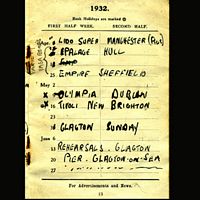 1932.
Bank Holidays are marked
FIRST HALF WEEK. SECOND HALF.
4 LIDO SUPER MANCHESTER
PALACE HULL
18
25 EMPIRE SHEFFIELD
May 2
X OLYMPIA DUBLIN
16 TIVOLI NEW BRIGHTON
18 CLACTON SUNDAY
June 6
13 REHEARSALS. CLACTON
20 PIER. CLACTON-ON-SEA
27
For Advertisements and News.
13